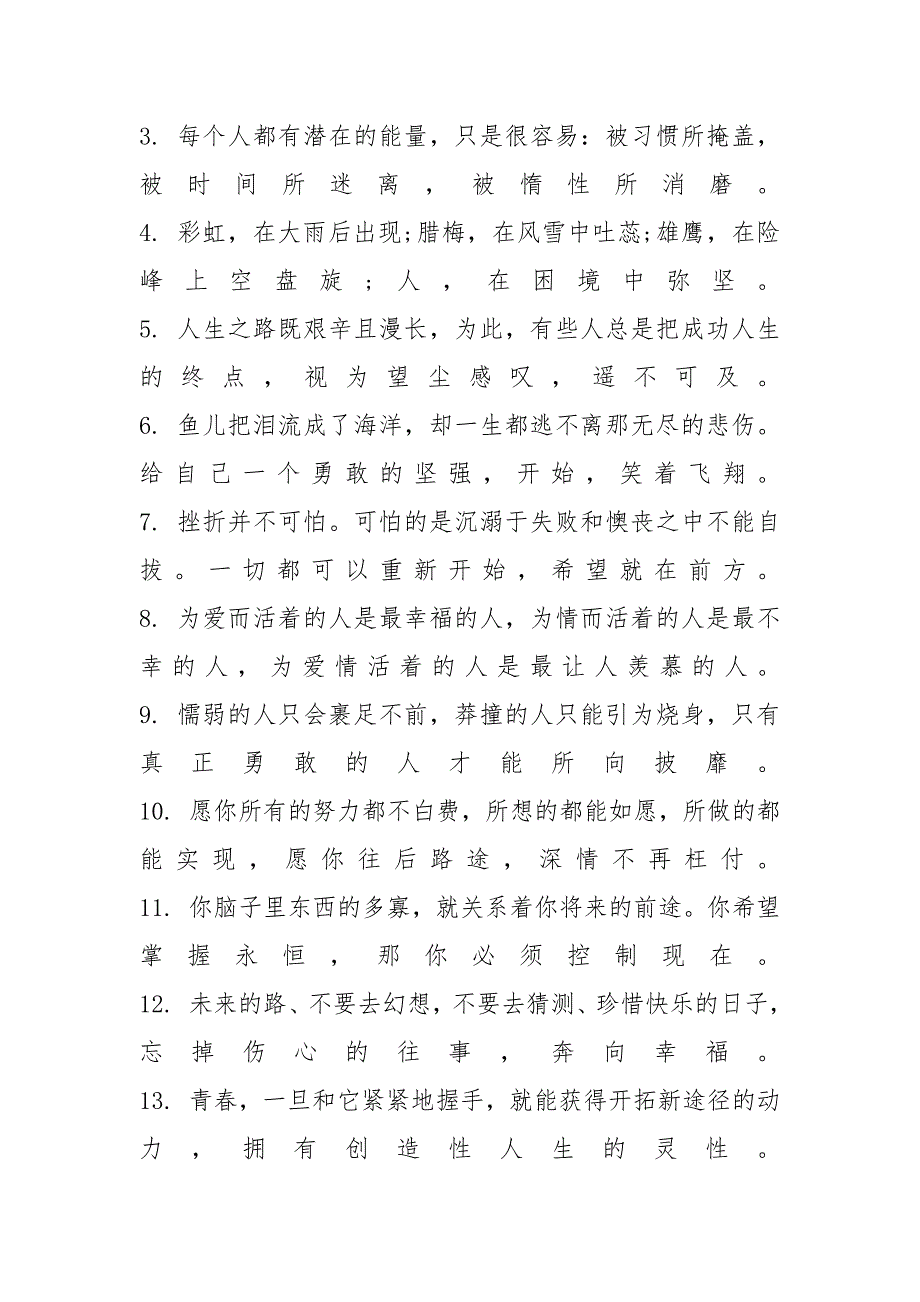 3. 每个人都有潜在的能量，只是很容易：被习惯所掩盖，
被时间所迷离，被惰性所消磨。
4. 彩虹，在大雨后出现;腊梅，在风雪中吐蕊;雄鹰，在险
峰上空盘旋;人，在困境中弥坚。
5. 人生之路既艰辛且漫长，为此，有些人总是把成功人生
的终点，视为望尘感叹，遥不可及。
6. 鱼儿把泪流成了海洋，却一生都逃不离那无尽的悲伤。
给自己一个勇敢的坚强，开始，笑着飞翔。
7. 挫折并不可怕。可怕的是沉溺于失败和懊丧之中不能自
拔。一切都可以重新开始，希望就在前方。
8. 为爱而活着的人是最幸福的人，为情而活着的人是最不
幸的人，为爱情活着的人是最让人羡慕的人。
9. 懦弱的人只会裹足不前，莽撞的人只能引为烧身，只有
真正勇敢的人才能所向披靡。
10. 愿你所有的努力都不白费，所想的都能如愿，所做的都
能实现，愿你往后路途，深情不再枉付。
11. 你脑子里东西的多寡，就关系着你将来的前途。你希望
掌握永恒，那你必须控制现在。
12. 未来的路、不要去幻想，不要去猜测、珍惜快乐的日子，
忘掉伤心的往事，奔向幸福。
13. 青春，一旦和它紧紧地握手，就能获得开拓新途径的动
力，拥有创造性人生的灵性。